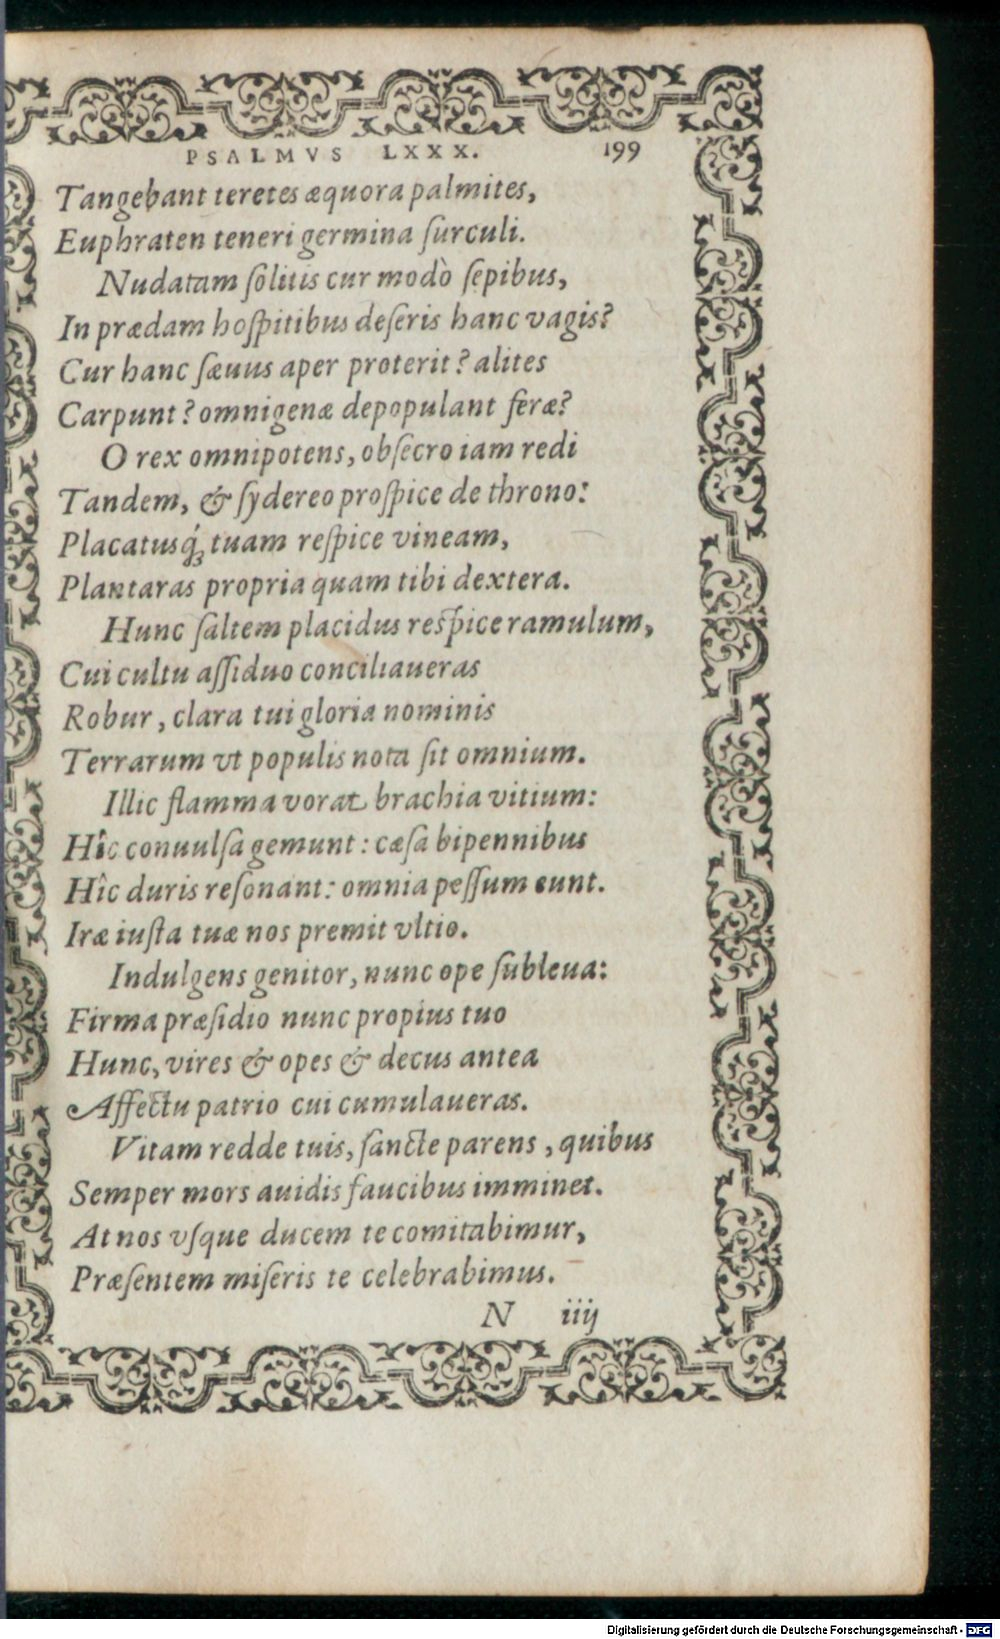 PSALMVS LXXX. 199
Tangebant teretes æquora palmites,
Euphraten teneri germina ſurculi.
Nudatam ſolitis cur modò ſepibus,
In prædam hoſpitibus deſeris hanc vagis?
Cur hanc ſæuus aper proterit? alites
Carpunt? omnigenæ depopulant feræ?
O rex omnipotens, obſecro iam redi
Tandem, & ſydereo proſpice de throno:
Placatusq́ꝫ tuam reſpice vineam,
Plantaras propria quam tibi dextera.
Hunc ſaltem placidus reſpice ramulum,
Cui cultu aſſiduo conciliaueras
Robur, clara tui gloria nominis
Terrarum vt populis nota ſit omnium.
Illic flamma vorat brachia vitium:
Hîc conuulſa gemunt: cæſa bipennibus
Hîc duris reſonant: omnia peſſum eunt.
Iræ iuſta tuæ nos premit vltio.
Indulgens genitor, nunc ope ſubleua:
Firma præſidio nunc propius tuo
Hunc, vires & opes & decus antea
Affectu patrio cui cumulaueras.
Vitam redde tuis, ſancte parens, quibus
Semper mors auidis faucibus imminet.
At nos vſque ducem te comitabimur,
Præſentem miſeris te celebrabimus.
N iiij
Digitalisierung gefördert durch die Deutsche Forschungsgemeinschaft - DFG